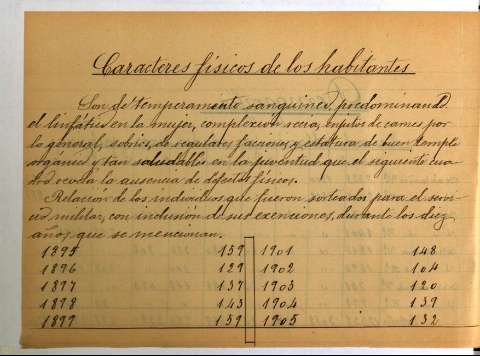 Caracteres físicos de los habitantes
Son de temperamento sanguineo, predominando
el linfático en la mujer, complexion recia, enjutos de carnes por
lo general, sobrios, de regulares facciones, y estatura de buen temple
organico y tan saludables en la juventud que el siguiente cua-
dro revela la ausencia de defectos físicos.
Relación de los individuos que fueron sorteados para el servi-
cio militar, con inclusión de sus exenciones, durante los diez
años que se mencionan.
1895 159 1901 148
1896 129 1902 104
1897 137 1903 120
1898 143 1904 139
1899 159 1905 132